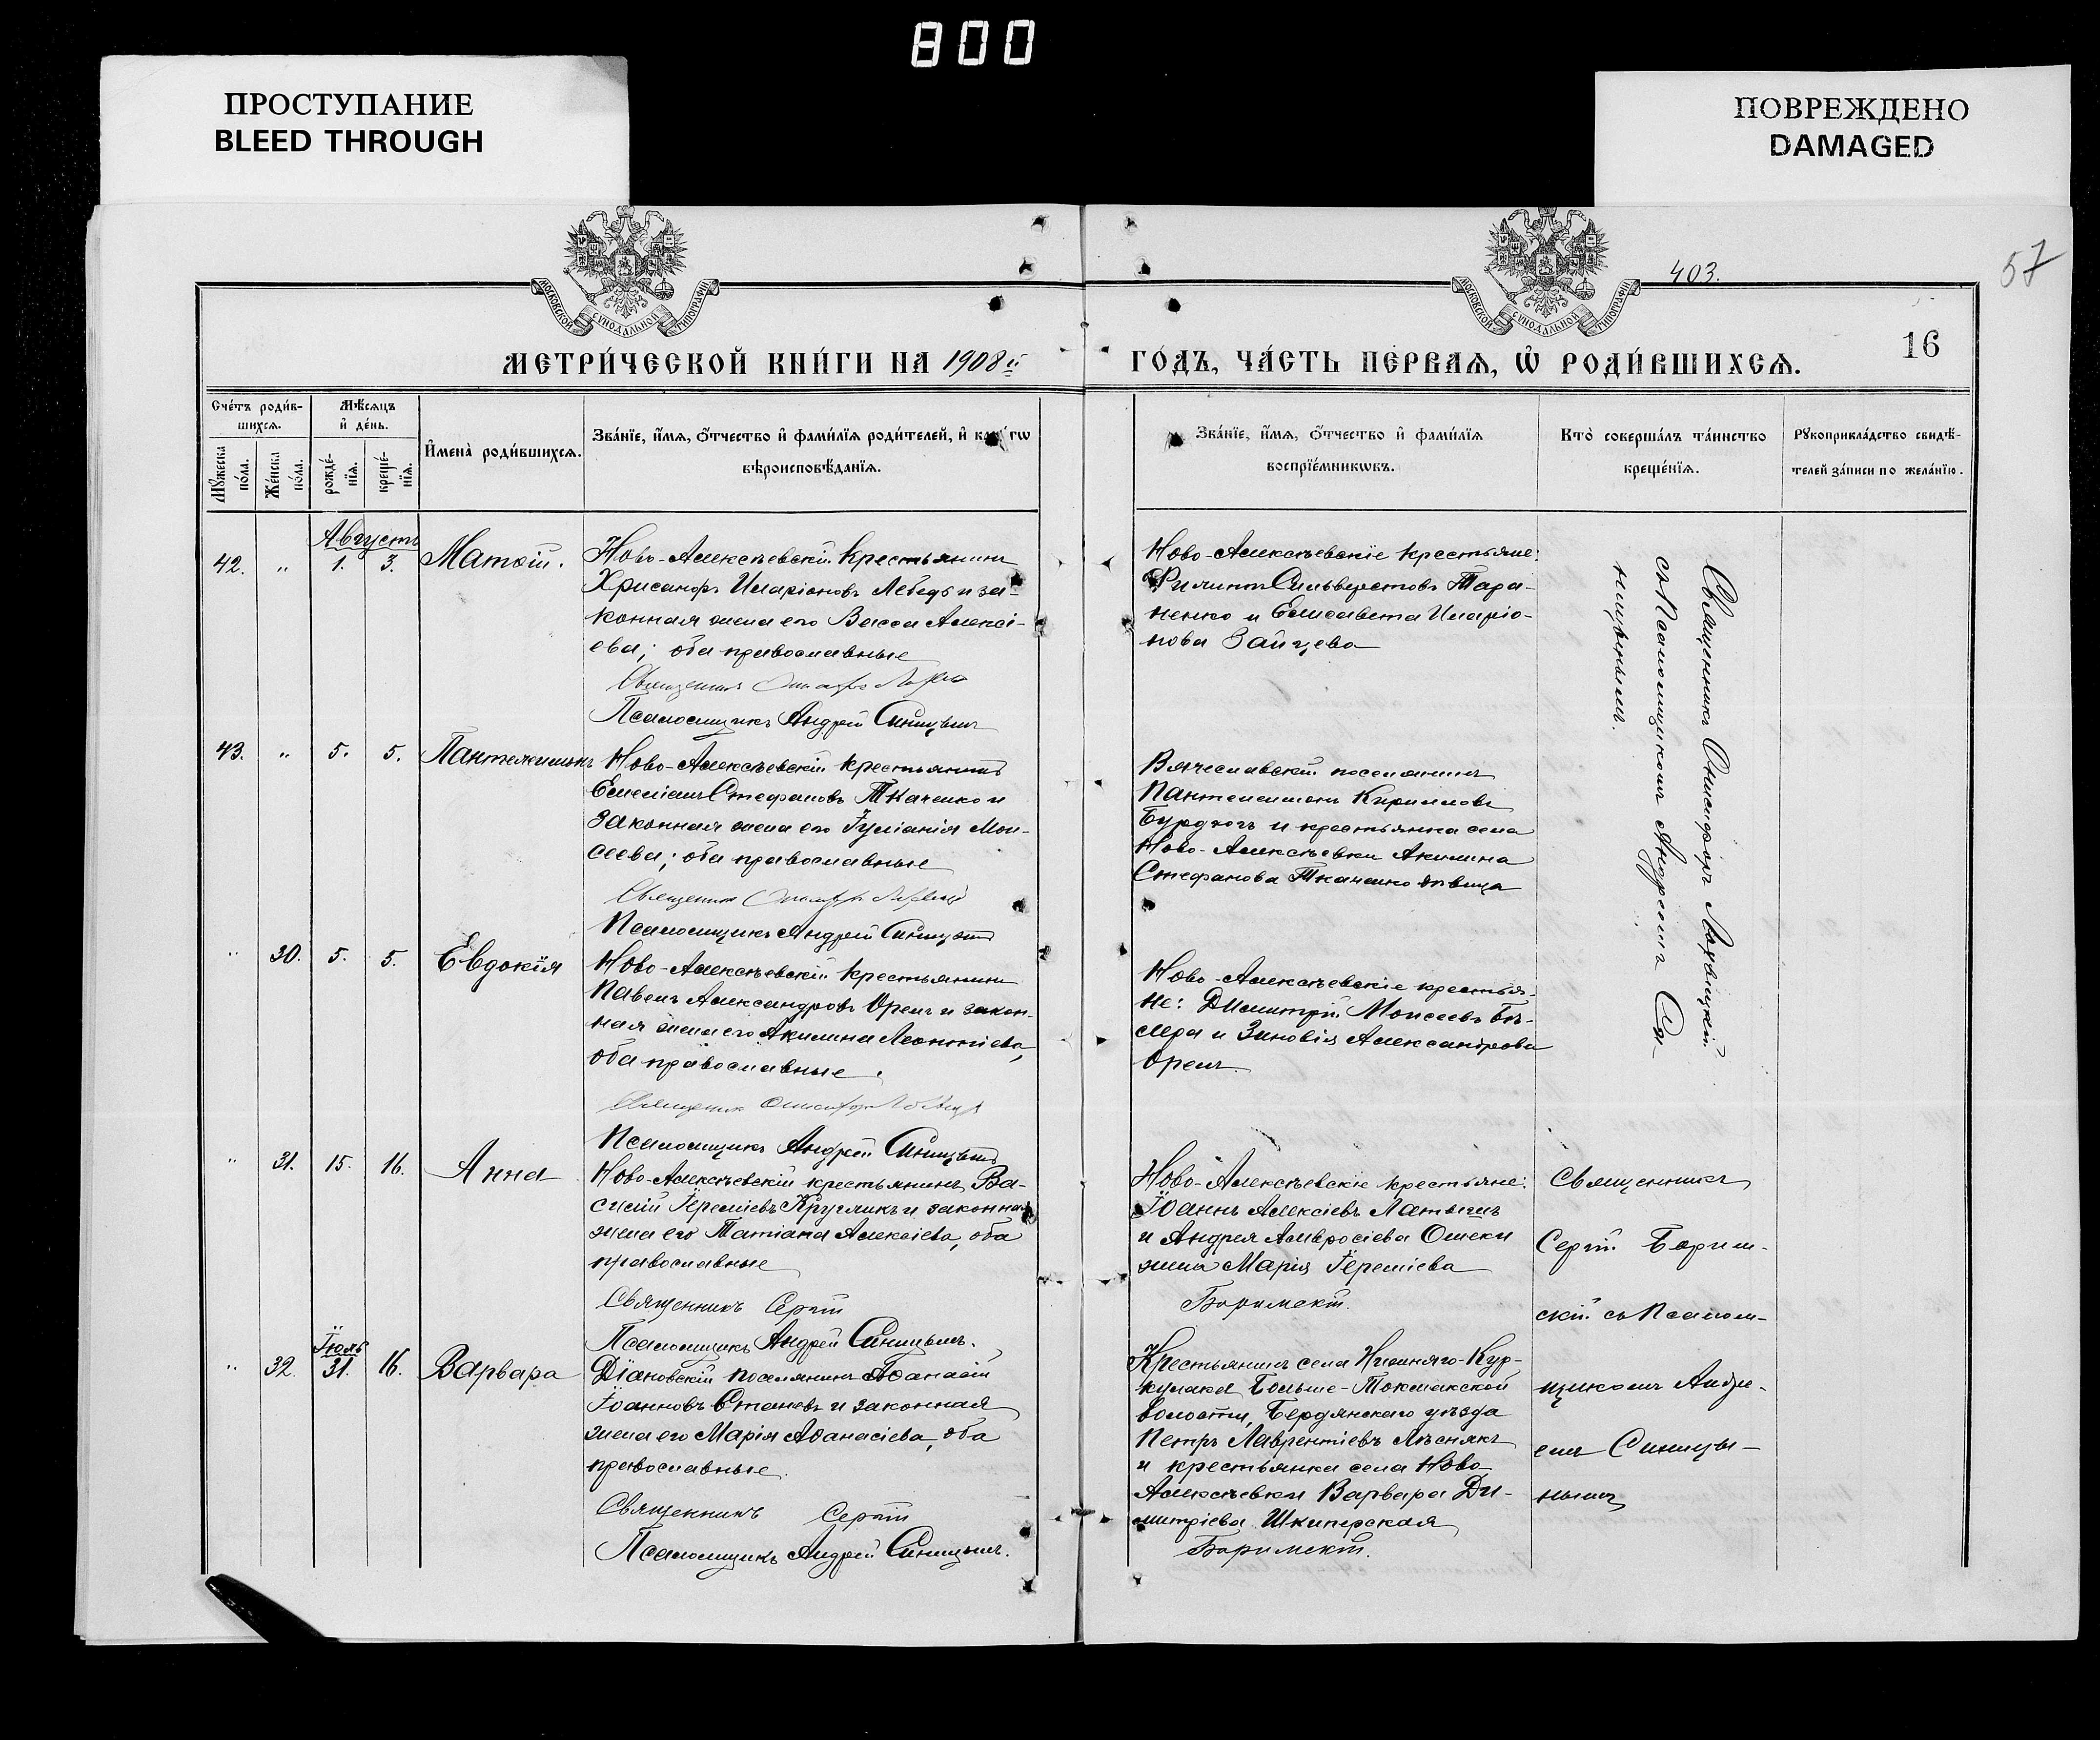 800
ПРОСТУПАНИЕ
BLEED THROUGH
ПОВРЕЖДЕНО
DAMAGED
МОСКОВСКОЙ СУНОДАЛЬНОЙ ТИПОГРАФІИ
МОСКОВСКОЙ СУНОДАЛЬНОЙ ТИПОГРАФІИ
403.
57
16
МЕТРИ́ЧЕСКОЙ КНИ́ГИ НА 1908й
ГО́ДЪ, ЧА́СТЬ ПЕ́РВАѦ, Ѡ҆ РОДИ́ВШИХСѦ.
Сче́тъ роди́в-
шихсѧ.
Мꙋ́жеска по́ла.
Же́нска по́ла.
Мѣ́сѧцъ
и҆ де́нь.
рожде́-
нїѧ.
креще́-
нїѧ.
И҆мена̀ роди́вшихсѧ.
Зва́нїе, и҆́мѧ, ѻ҆́тчество и҆ фами́лїѧ роди́телей, и҆ како́гѡ
вѣроисповѣ́данїѧ.
Зва́нїе, и҆́мѧ, ѻ҆́тчество и҆ фами́лїѧ
воспрїе́мникѡвъ.
Кто̀ соверша́лъ та́инство
креще́нїѧ.
Рꙋкоприкла́дство свидѣ́-
телей за́писи по жела́нїю.
Августъ
42. " 1. 3. Матѳій.
Ново-Алексѣевскій крестьянинъ
Хрисанѳъ Иларіоновъ Лебедь и за-
конная жена его Васса Алексі-
ева; оба православные
Священникъ Онисифоръ
Псаломщикъ Андрей Синицынъ
Ново-Алексѣевскіе крестьяне:
Филиппъ Сильвестровъ Тара-
ненко и Елисавета Иларіо-
нова Зайцева
Священникъ Онисифоръ Лохвицкій
съ Псаломщикомъ Андреемъ Си-
ницынымъ.
43. " 5. 5. Пантелеимонъ
Ново-Алексѣевскій крестьянинъ
Емеліанъ Стефановъ Ткаченко и
законная жена его Іуліанія Мои-
сеева; оба православные
Священникъ Онисифоръ
Псаломщикъ Андрей Синицынъ
Вячеславскій поселянинъ
Пантелеимонъ Кирилловъ
и крестьянка села
Ново-Алексѣевки Акилина
Стефанова Ткаченко дѣвица
" 30. 5. 5. Евдокія
Ново-Алексѣевскій крестьянинъ
Павелъ Александровъ Орелъ и закон-
ная жена его Акилина Леонтіева,
оба православные.
Священникъ Онисифоръ
Псаломщикъ Андрей Синицынъ
Ново-Алексѣевскіе крестья-
не: Димитрій Моисеевъ
и Зиновія Александрова
Орелъ.
" 31. 15. 16. Анна
Ново-Алексѣевскій крестьянинъ Ва-
силій Іереміевъ Кругликъ и законная
жена его Татіана Алексіева, оба
православные
Священникъ Сергій
Псаломщикъ Андрей Синицынъ.
Ново-Алексѣевскіе крестьяне:
Іоаннъ Алексіевъ Латышъ
и Андрея Амвросіева
жена Марія Іереміева
Боримскій.
Священникъ
Сергій Борим-
скій съ Псалом-
щикомъ Андре-
емъ Синицы-
нымъ
Іюль
" 32. 31. 16. Варвара
Діановскій поселянинъ Аѳанасій
Іоанновъ Становъ и законная
жена его Марія Аѳанасіева, оба
православные.
Священникъ Сергій
Псаломщикъ Андрей Синицынъ.
Крестьянинъ села Нижняго-Кур-
кулака Больше-Токмакской
волости, Бердянскаго уѣзда
Петръ Лаврентіевъ Лѣснякъ
и крестьянка села Ново-
Алексѣевки Варвара Ди-
митріева Шкиперская
Боримскій.